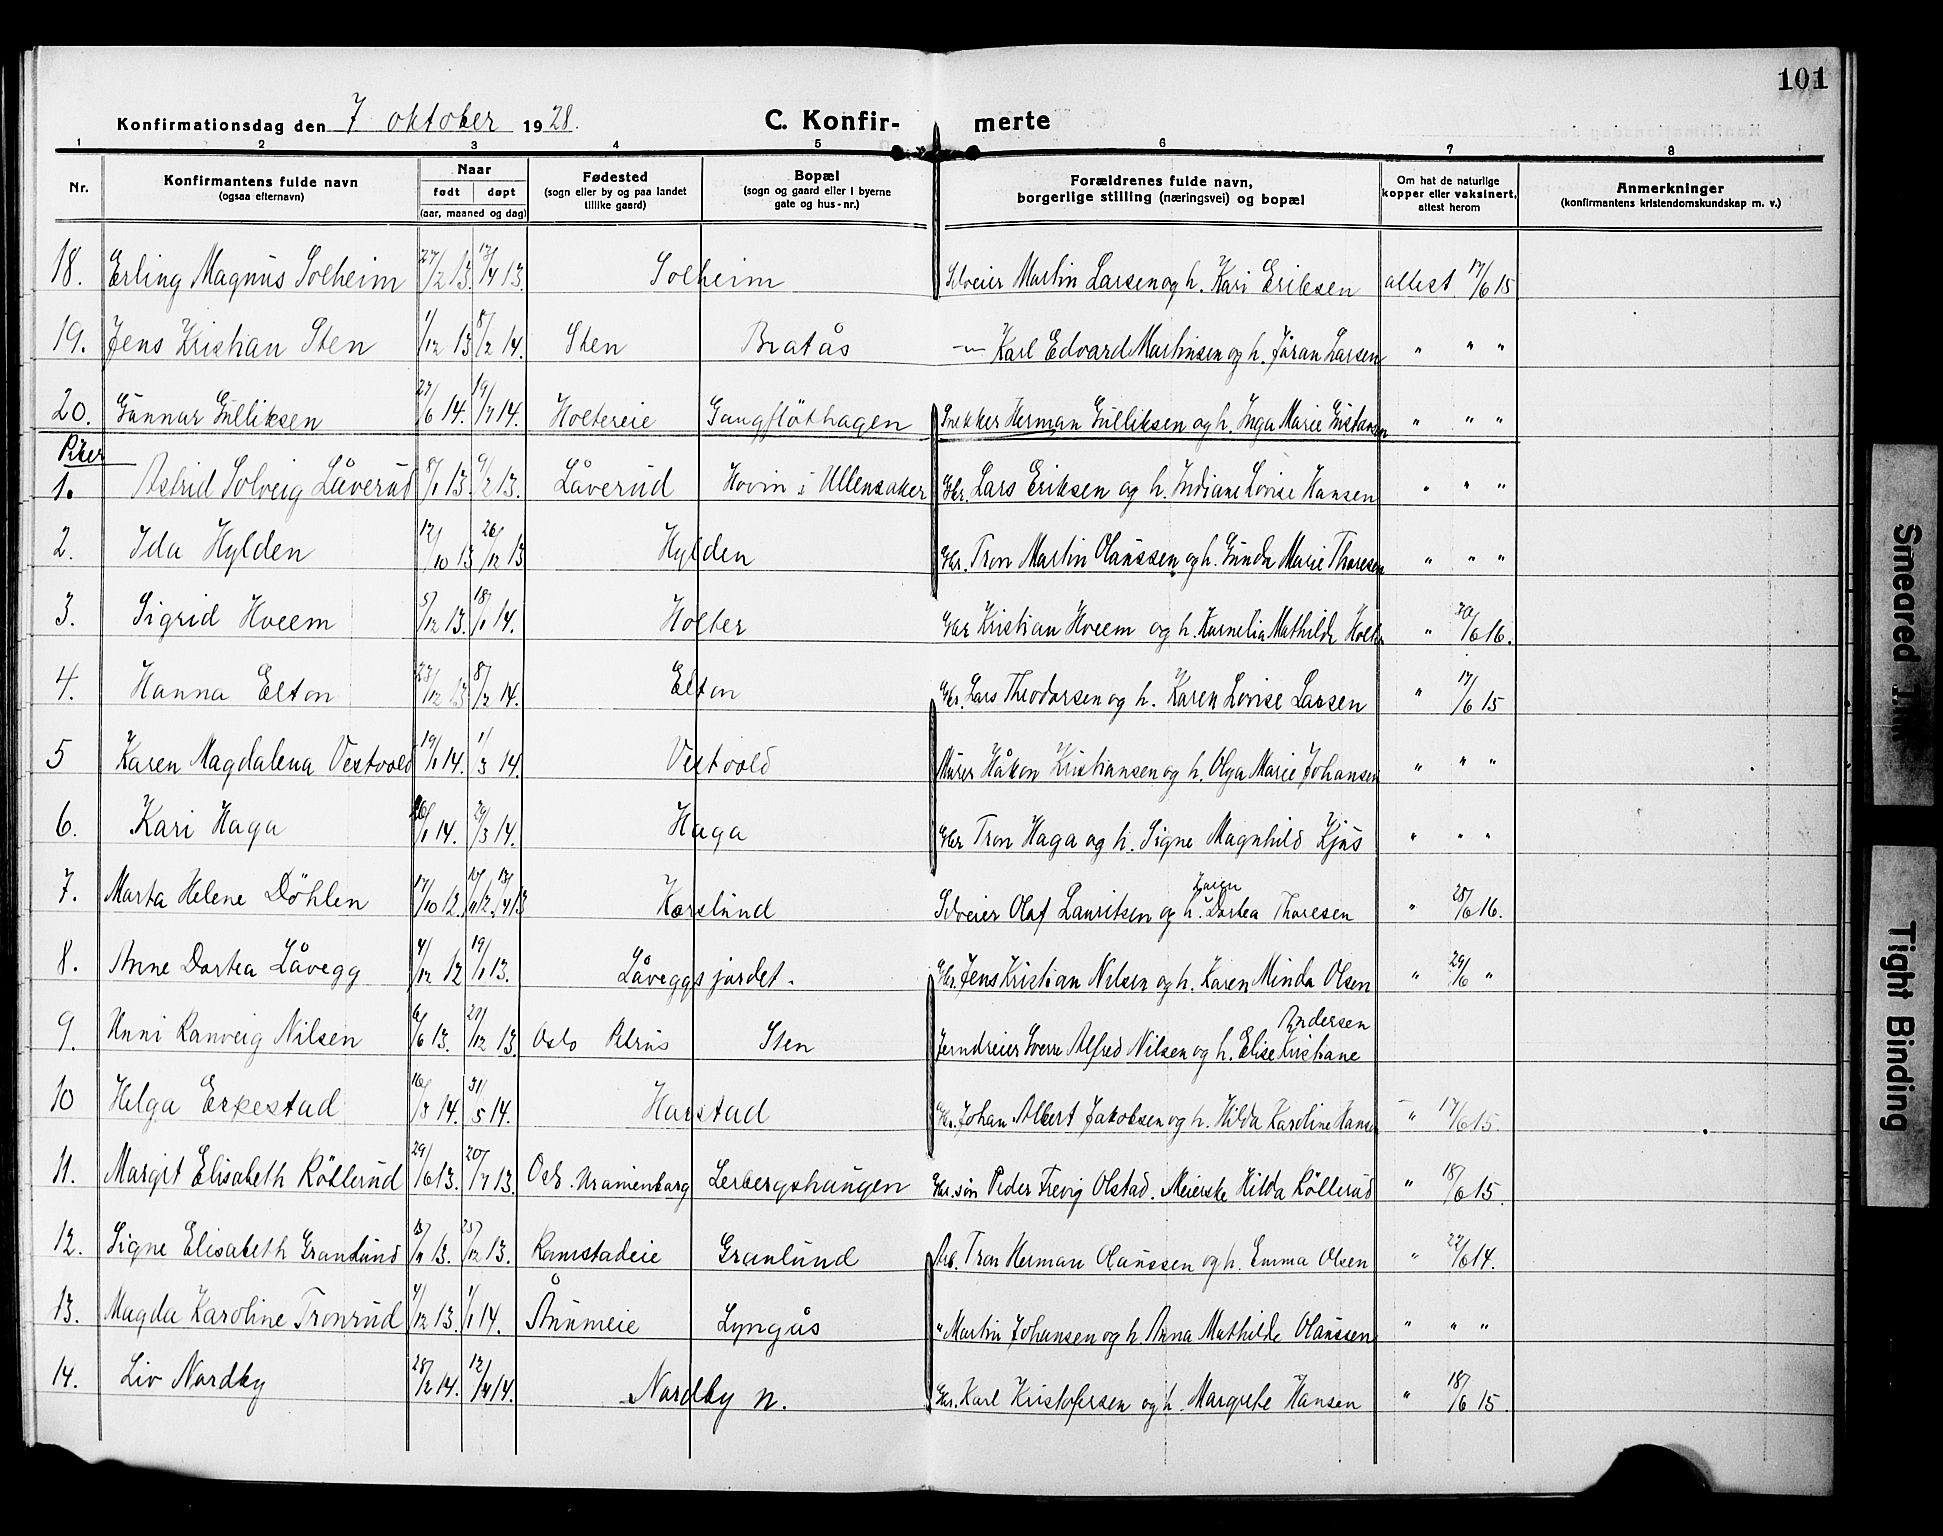 101
Konfirmationsdag den 7 oktober 1928.
C. Konfir- merte
1 2 3 4 5 6 7 8
Nr.
Konfirmantens fulde navn
(ogsaa efternavn)
Naar
født døpt
(aar, maaned og dag)
Fødested
(sogn eller by og paa landet
tillike gaard)
Bopæl
(sogn og gaard eller i byerne
gate og hus-nr.)
Forældrenes fulde navn,
borgerlige stilling (næringsvei) og bopæl
Om hat de naturlige
kopper eller vaksinert,
attest herom
Anmerkninger
(konfirmantens kristendomskundskap m. v.)
18. Erling Magnus Solheim 27/2 13. 13/4 13. Solheim Selveier Martin Larsen og h. Kari Eriksen attest 17/6 15
19. Jens Kristian Sten 1/12 13 8/2 14. Sten Bratås -"- Karl Edvard Martinsen og h. Jøran Larsen " " "
20. Gunnar Gulliksen 27/6 14. 19/7 14. Holtereie Gangfløthagen Snekker Herman Gulliksen og h. Inga Marie Gustavsen " " "
Piker
1. Astrid Solveig Låverud 8/1 13. 9/2 13. Låverud Hovin i Ullensaker Gbr. Lars Eriksen og h. Indiane Lovise Hansen " " "
2. Ida Hylden 12/10 13 26/12 13 Hylden Gbr. Tron Martin Olaussen og h. Gunda Marie Thoresen " " "
3. Sigrid Hveem 5/12 13. 18/1 14. Holter Gbr Kristian Hveem og h. Karnelia Mathilde Holter " 20/6 16.
4. Hanna Elton 23/12 13 8/2 14. Elton Gbr. Lars Theodorsen og h. Karen Lovise Larsen " 17/6 15
5 Karen Magdalena Vestvold 19/1 14. 1/3 14. Vestvold Murer Håkon Kristiansen og h. Olga Marie Johansen " " "
6. Kari Haga 26/1 14. 29/3 14. Haga Gbr Tron Haga og h. Signe Magnhild Kjus " " "
7. Marta Helene Døhlen 17/10 12. 17/11 12. 13/4 13 Karslund Selveier Olaf Lauritsen og h. Karen Dortea Thoresen " 28/6 16.
8. Anne Dortea Låvegg 4/12 12 19/1 13. Låveggsjordet. Gbr. Jens Kristian Nilsen og h. Karen Minda Olsen " 29/6 "
9. Unni Ranveig Nilsen 6/6 13. 27/12 13. Oslo Petrus Sten Jerndreier Sverre Alfred Nilsen og h. Elise Kristiane Andersen
10 Helga Erpestad 16/3 14. 31/5 14. Harstad Gbr. Johan Albert Jakobsen og h. Hilda Karoline Hansen " 17/6 15.
11. Margit Elisabeth Røtterud 29/6 13. 20/7 13. Oslo. Uranienborg Lerbergshaugen Gbr. søn Peder Trevig Olstad. Meierske Hilda Røtterud " 18/6 15.
12. Signe Elisabeth Granlund 13/11 13. 25/12 13. Ramstadeie Granlund Arb. Tron Herman Olaussen og h. Emma Olsen " 22/6 14.
13. Magda Karoline Tronrud 4/12 13. 1/1 14. Åmumeie Lyngås " Martin Johansen og h. Anna Mathilde Olaussen " " "
14. Liv Nordby 28/2 14. 12/4 14. Nordby n. Gbr. Karl Kristofersen og h. Margrete Hansen " 18/6 15.
Smeared Ink
Tight Binding